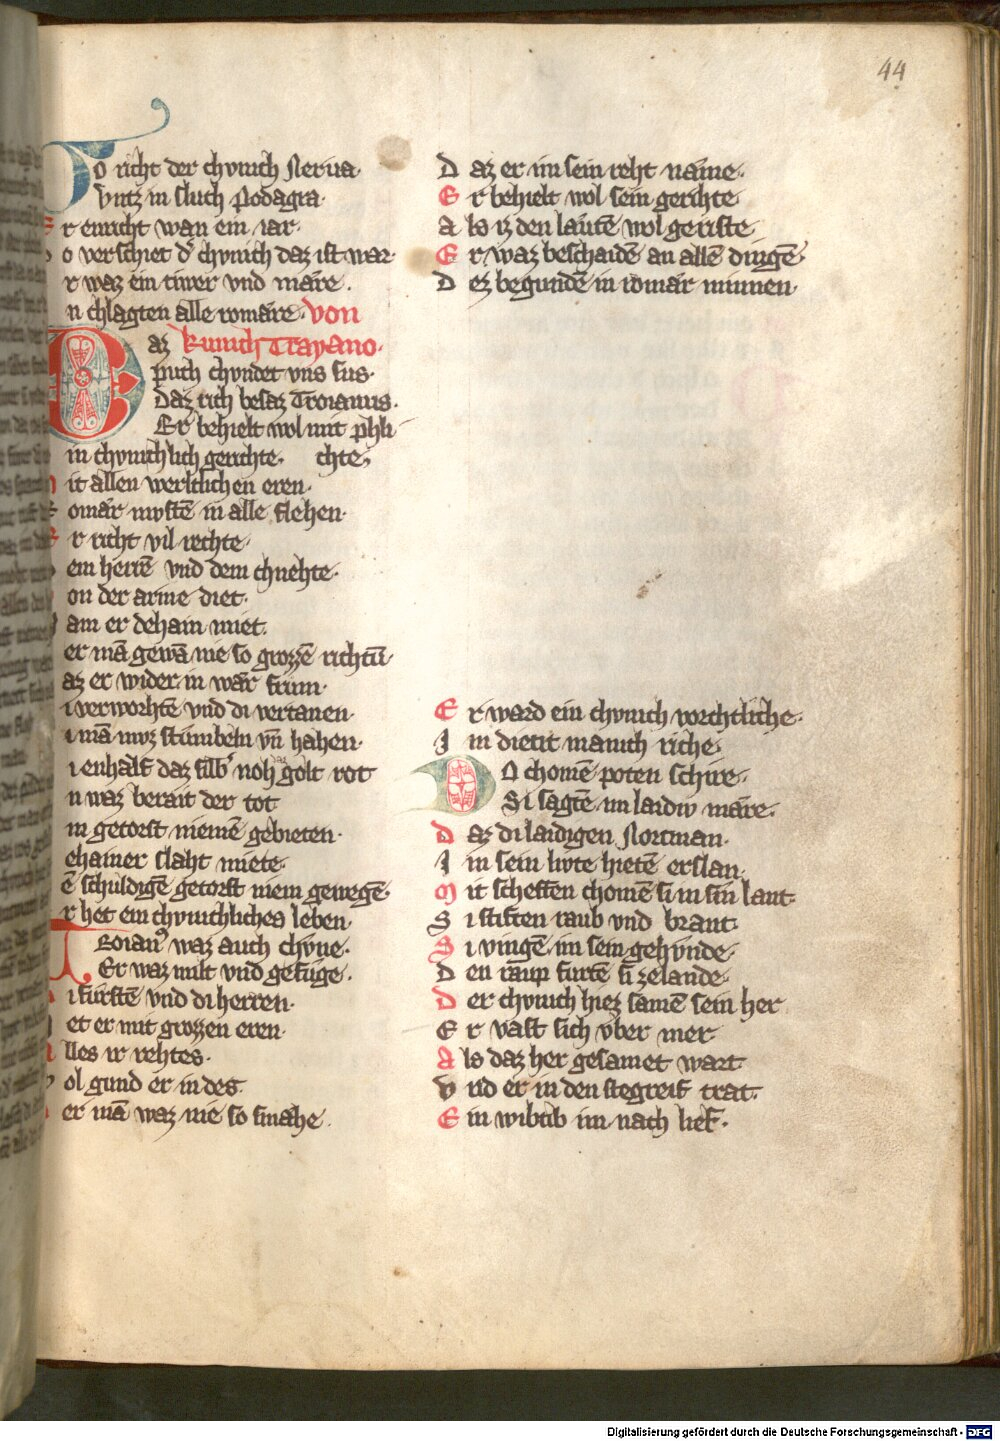 44
Do richt der chvnich Nerua·
Vntz in sluch Podagra·
Er enricht wan ein iar·
o verschiet d' chvnich daz ist war·
r waz ein tiwer vnd märe·
n chlagten alle romäre· von
az kunich Trayano·
puch chvndet vns sus·
Daz rich besaz Troianus·
Er behielt wol mit phli
in chvnichlich gerichte· chte·
it allen werltlichen eren·
omär mvstē in alle flehen·
r richt vil rechte·
em herrē vnd dem chnehte·
on der arme diet·
am er dehain miet·
er mā gewā nie so grozzē richtū·
az er wider in wär frum·
i verworhtē vnd di vertanen·
i mā mvz stumbeln vn̄ hahen·
i enhalf daz silb' noh daz golt rot
n waz berait der tot
in getorst niemē gebieten·
ehainer slaht miete·
ē schuldigē getorst niem gewegē·
r het ein chvnichliches leben·
Troian' waz auch chvne·
Er waz milt vnd gefuge·
i furstē vnd di herren·
et er mit grozzen eren·
lles ir rehtes·
ol gund er in des·
er mā waz nie so smahe·
D az er im sein reht näme·
E r behielt wol sein gerihte
A ls iz den läutē wol geriste
E r waz beschaidē an allē dingē
D ez begundē in romär minnen·
E r ward ein chvnich vorchtliche·
I m dietit manich riche·
Do chomē poten schire·
Si sagtē im laidiv märe·
D az di laidigen Nortman·
I m sein livte hietē erslan·
M it scheffen chomē si in sin lant·
S i stiften raub vnd brant·
S i vingē im sein gehvnde·
D en raup furtē si zelande·
D er chvnich hiez samē sein her
E r vast sich vber mer
A ls daz her gesamet wart·
V nd er in den stegreif trat·
E in wibtib im nach lief·
Digitalisierung gefördert durch die Deutsche Forschungsgemeinschaft - DFG